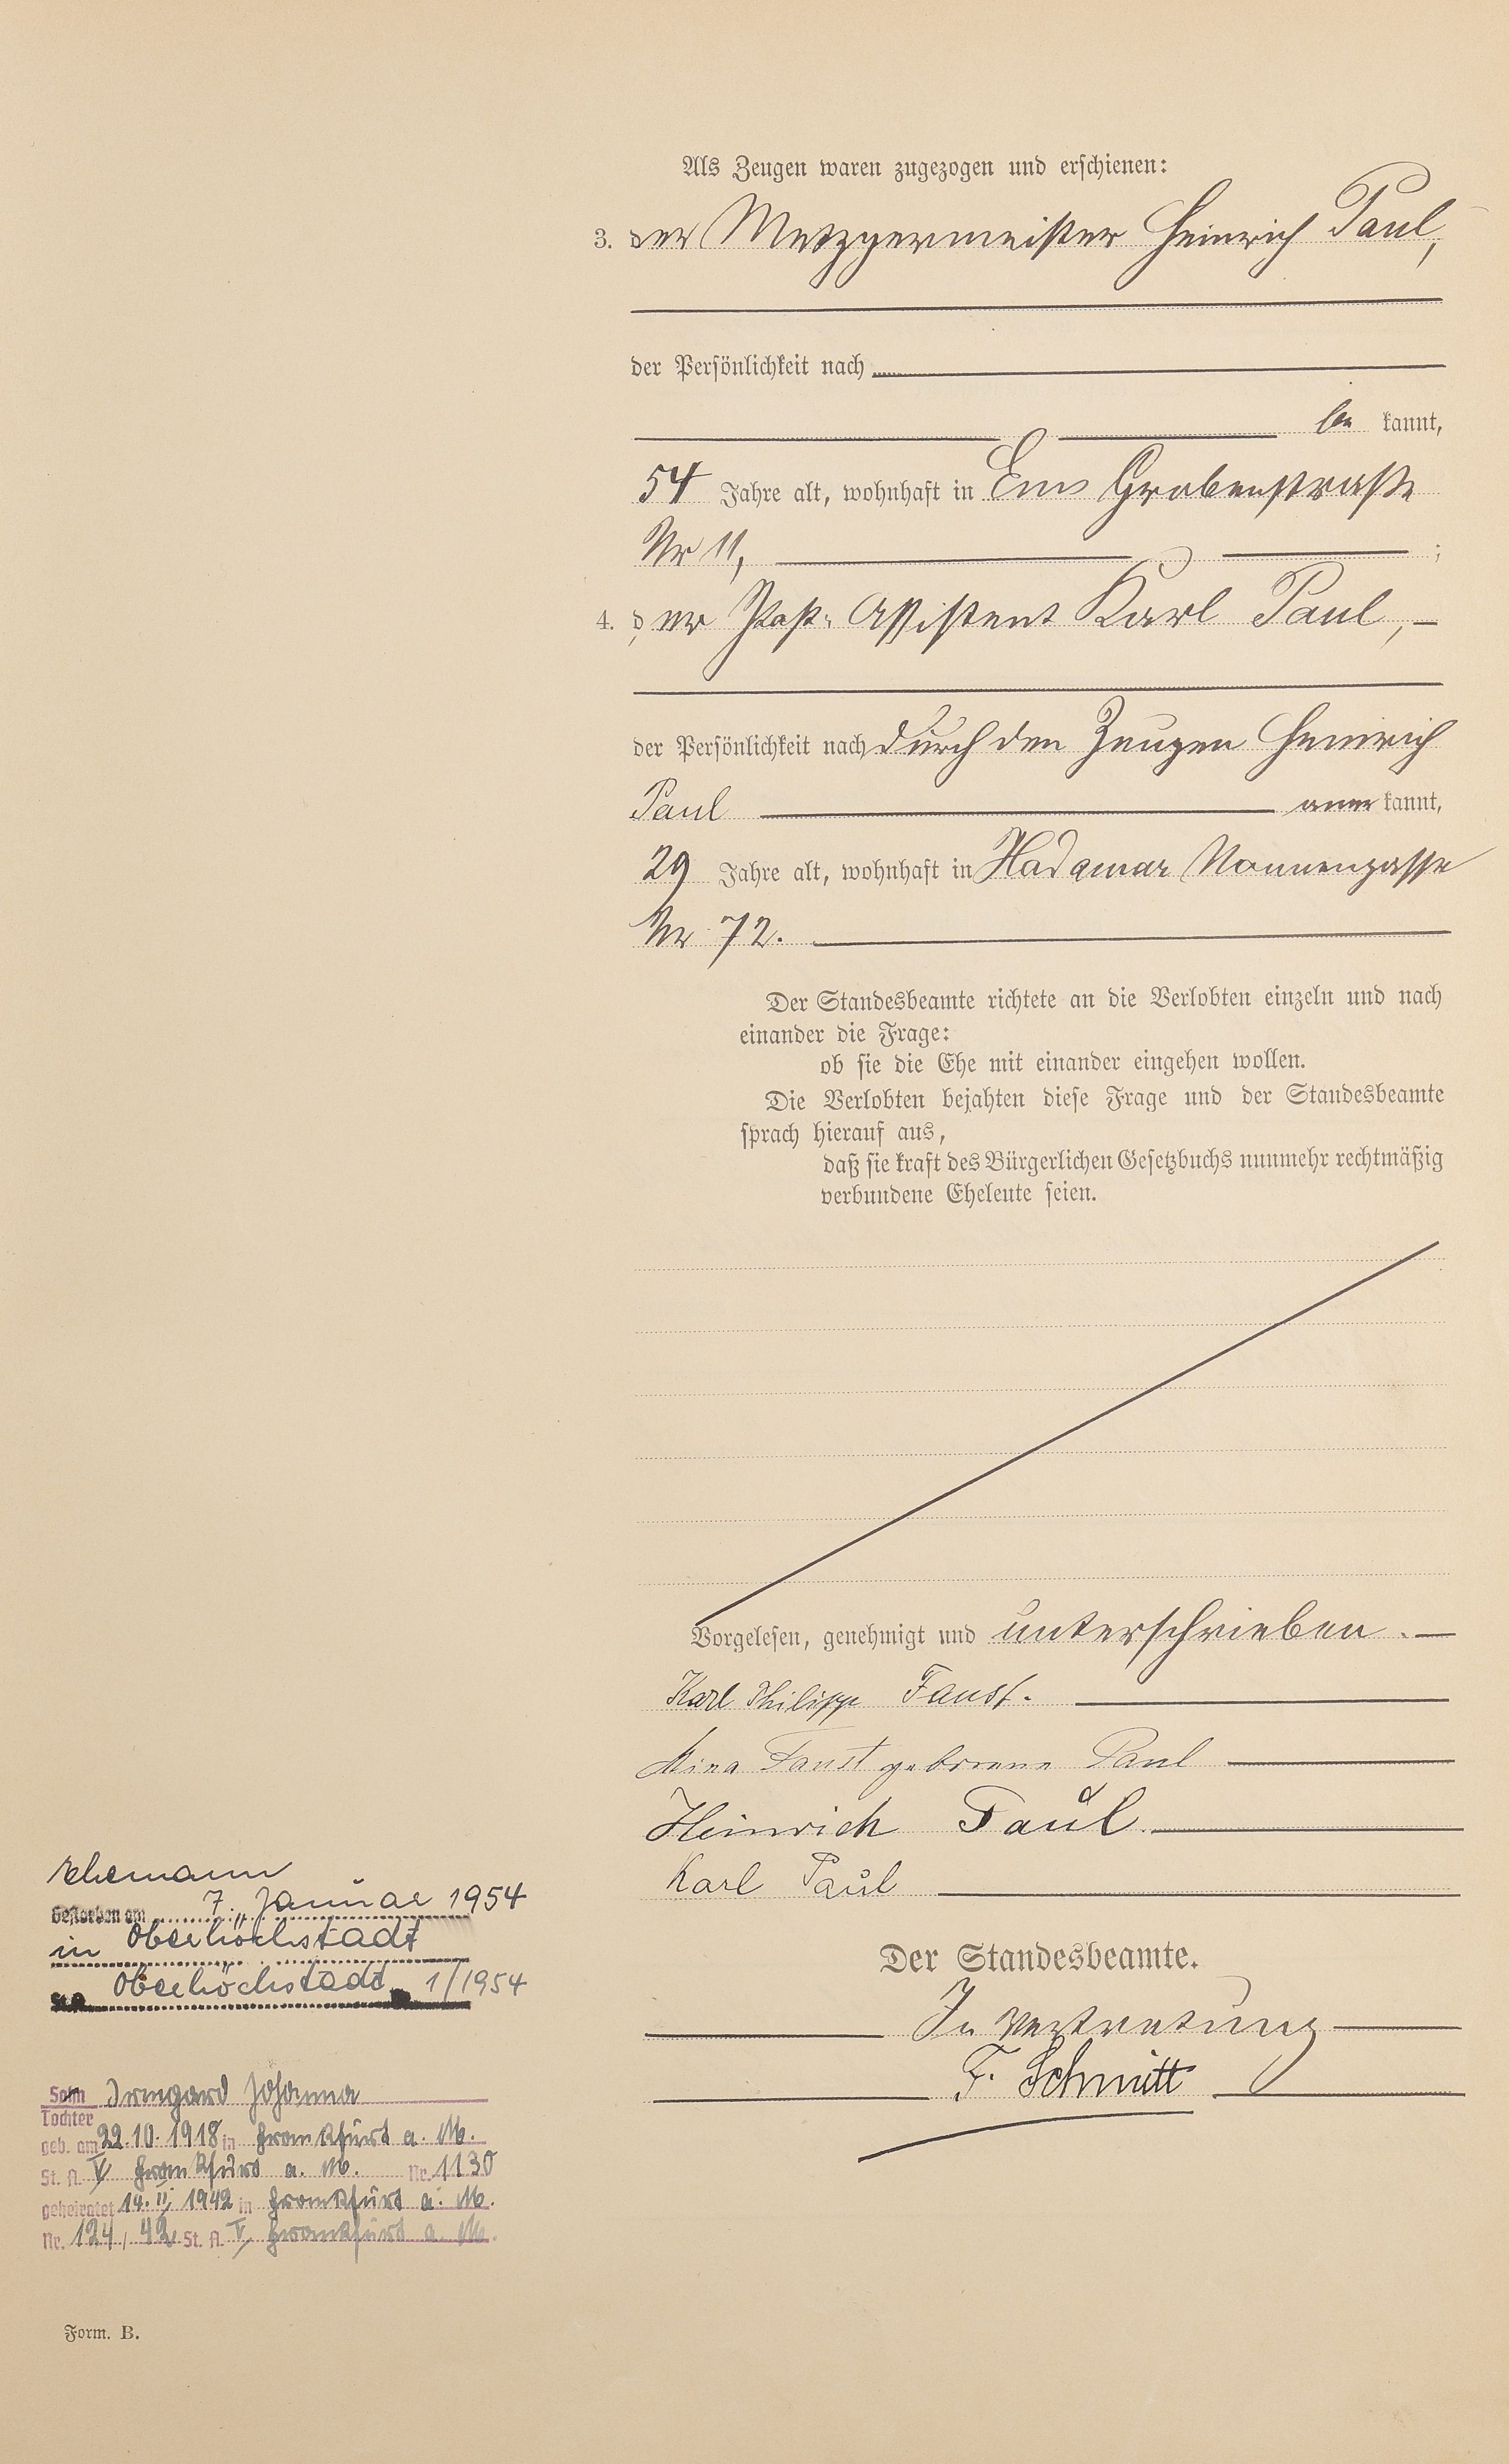 Als Zeugen waren zugezogen und erschienen:
3. der Metzgermeister Heinrich Paul,
der Persönlichkeit nach
be kannt,
54 Jahre alt, wohnhaft in Ems Grabenstraße
Nr 11, ;
4. der Post-Assistent Karl Paul,
der Persönlichkeit nach durch den Zeugen Heinrich
Paul aner kannt,
29 Jahre alt, wohnhaft in Hadamar Nonnengasse
Nr 72.
Der Standesbeamte richtete an die Verlobten einzeln und nach
einander die Frage:
ob sie die Ehe mit einander eingehen wollen.
Die Verlobten bejahten diese Frage und der Standesbeamte
sprach hierauf aus,
daß sie kraft des Bürgerlichen Gesetzbuchs nunmehr rechtmäßig
verbundene Eheleute seien.
Vorgelesen, genehmigt und unterschrieben.
Karl Philipp Faust.
Mina Faust geborene Paul
Heinrich Paul.
Karl Paul
Der Standesbeamte.
In Vertretung
F. Schmitt
Ehemann
Gestorben am 7. Januar 1954
in Oberhöchstadt
St.A. Oberhöchstadt 1/1954
Sohn Irmgard Johanna
Tochter
geb. am 22.10.1918 in Frankfurt a. M.
St. A. V Frankfurt a. M. Nr. 1130
geheiratet 14. II. 1942 in Frankfurt a. M.
Nr. 124/42 St. A. V, Frankfurt a. M.
Form. B.